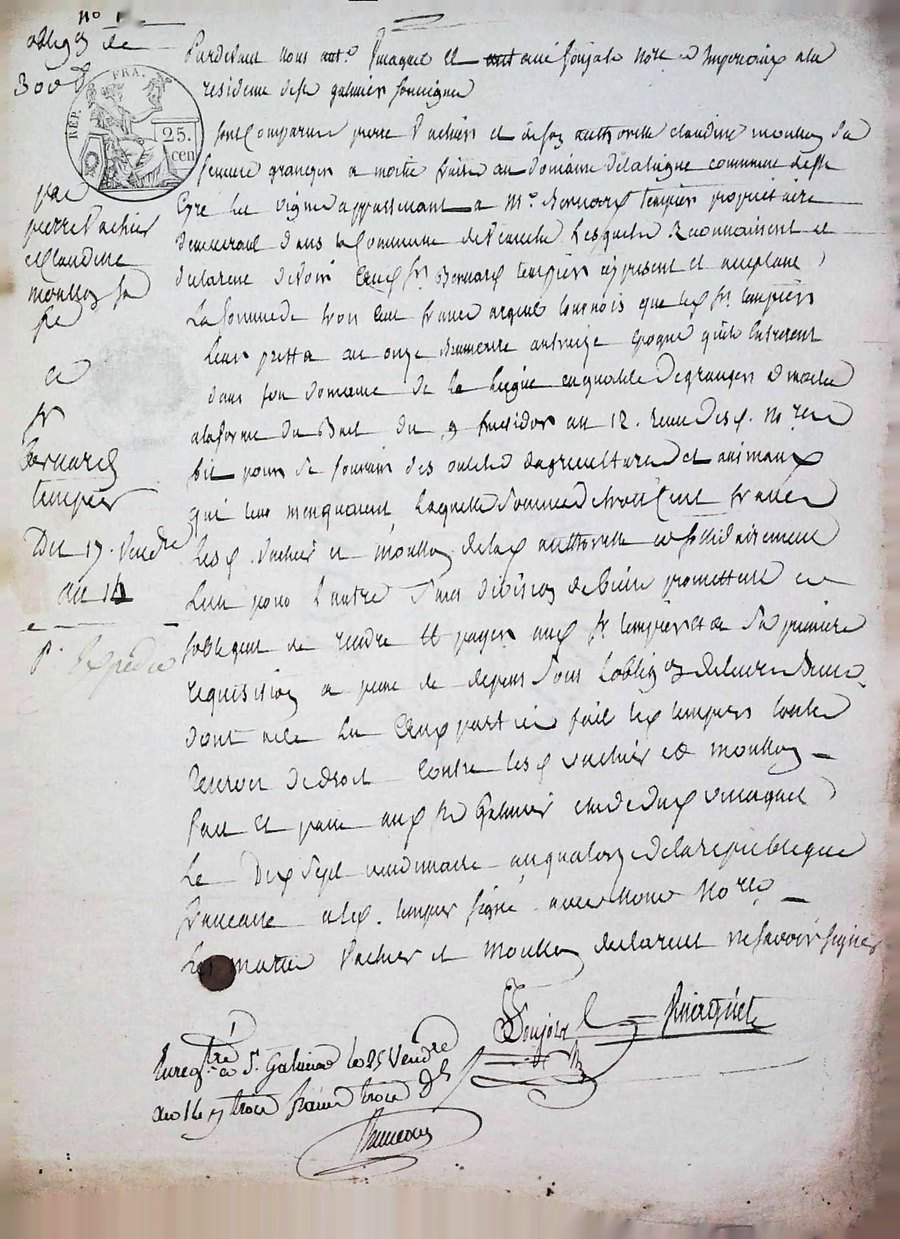 nº 1
obligon de
300 #
REP. FRA.
25.
cen
par
pierre Vachier
et Claudine
moullon sa
fe
a
sr
Bernard
tempier
Du 17. Vendre
an 14
Expédié
Pardevant nous Pinaquet et Jean foujols Notres Imperiaux a la
residence de st galmier soussigné
sont Comparus pierre Vachier et de son authorité claudine moullon sa
femme grangers a moitié fruits au domaine de la liegue commune de st
Cyre les vignes appartenant a Mr. Bernard tempier propriétaire
demeurant dans la Commune de Lesquels Reconnaissent et
declarent devoir audt sr Bernard tempier cy present et acceptant
La somme de trois cent francs argent tournois que led. sr tempier
Leur pretta au onze Brumaire an treize Epoque qu'ils entrerent
dans son domaine de la liegue en qualité de grangers a moitié
a la forme du Bail du 9 fructidor an 12. Reçu desd. Notres
fut pour se fournir des outils d'agriculture et animaux
qui leur manquaient Laquelle somme de trois Cent francs
Lesd. Vachier et moullon de lad. authorité et sollidairement
L'un pour L'autre sans division de biens promettent et
s'obligent de rendre et payer aud. sr tempier et a sa premiere
requisition a peine de depens sous L'obligon de leurs Biens
dont acte
recours de droit Contre lesd. vachier et moullon
fait et passé aud. St Galmier etude dud. Pinaquet
Le Dix sept vendemiaire an quatorze de la republique
francaise et led. tempier signé avec nous Notres
Les mariés Vachier et moullon declarent ne savoir signer
Foujols Pinaquet
Enregtré a St. Galmier le 25 Vendre
an 14 trois francs trois ds